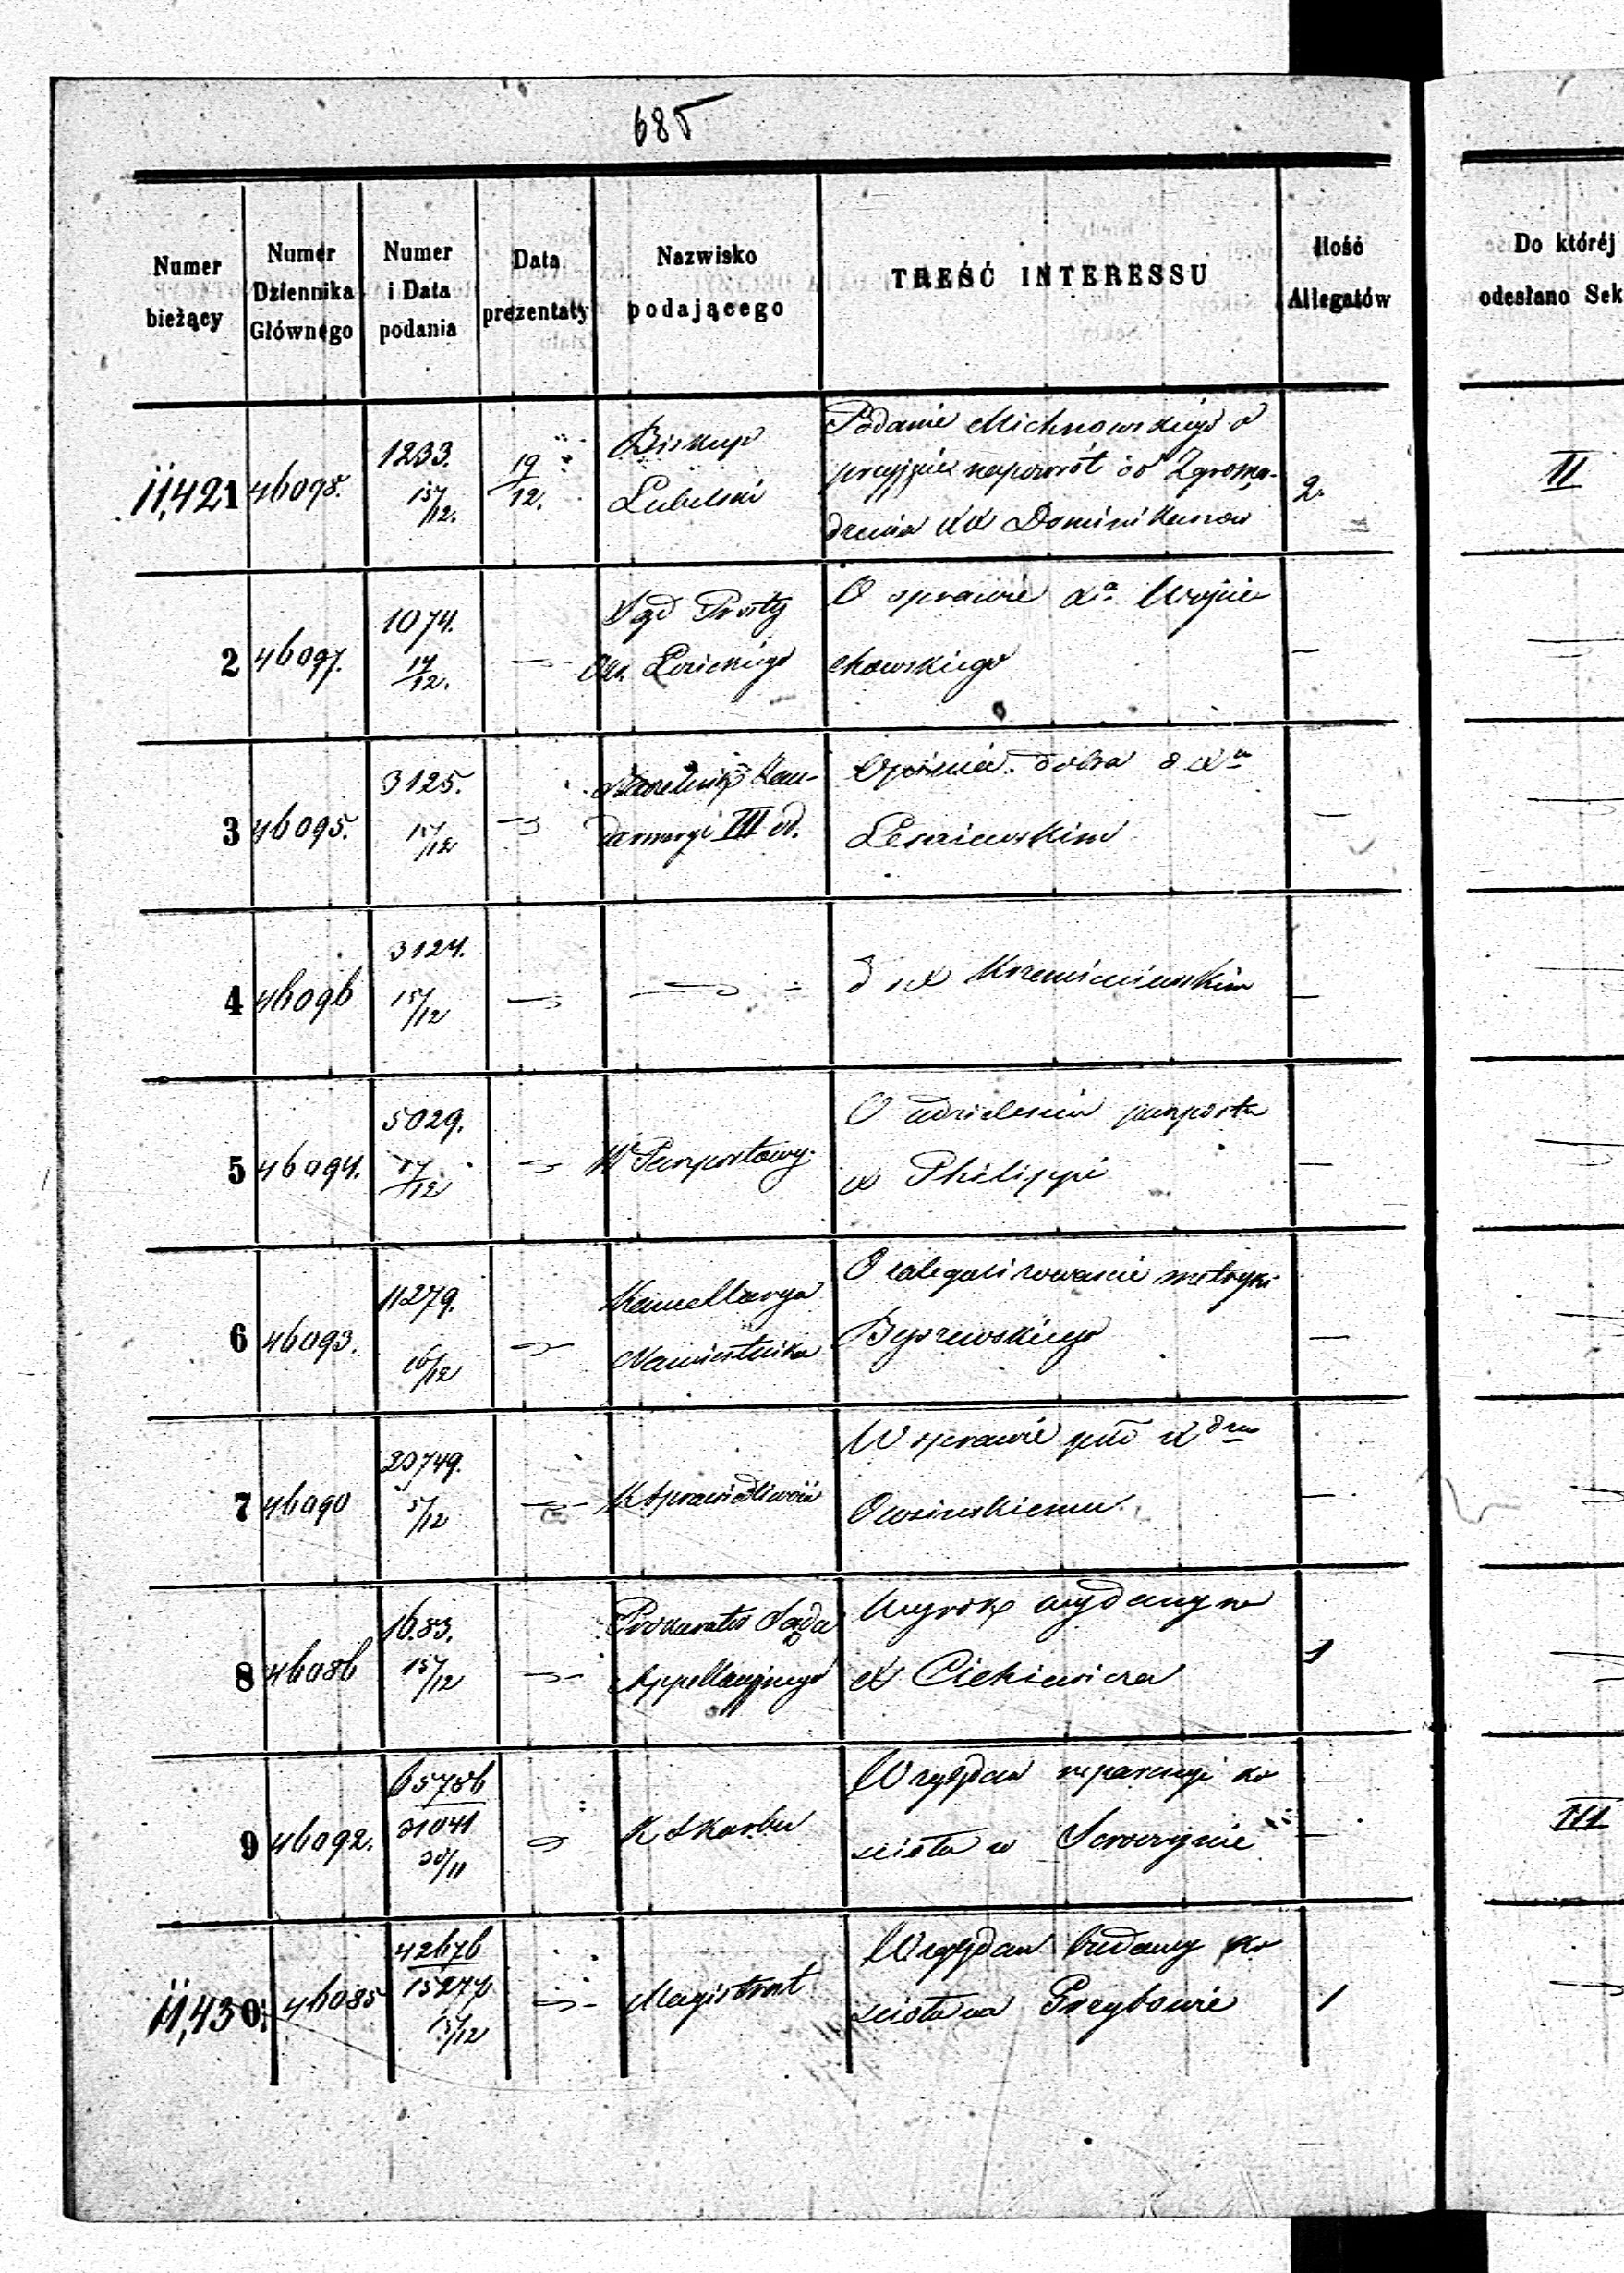 685
Numer bieżący
Numer Dziennika Głównego
Numer i Data podania
Data prezentaty
Nazwisko podającego
TREŚĆ INTERESSU
Ilość Allegatów
Do któréj odesłano Sek
11,421 46098. 1233. 15/12. 19/12. Biskup Lubelski
Podanie Michnowskiego o
przyjęcie napowrót do Zgroma-
dzenia XX Dominikanów
2. II
2 46097. 1074. 14/12. Sąd Prosty
O sprawie Xa Wojcie
chowskiego
3 46095. 3125. 15/12 Naczelnik Żan-
darmeryi III od.
Opinia dobra o Xu
Leszczewskim
4 46096 3124. 15/12
d o X Krzemieniewskim
5 46094. 5029. 14/12 W Paszportowy.
O udzielenie paszportu
X Philippi
6 46093. 11279. 16/12 Kancellarya
Namiestnika
O zalegalizowanie metryki
Byszewskiego
7 46090 20749. 5/12 K Sprawiedliwości
W sprawie
Owsinskiemu.
8 46086 1683. 15/12 Prokurator Sądu
Appellacyjnego
Wyrok wydany na
X Cickiewicza
1
9 46092. 65786 31041 30/11 K Skarbu
Względem reparacyi ko
scioła w Skroczynie
III
11,430. 46085 42676 15277 15/12 Magistrat
Względem budowy ko
scioła na Grzybowie
1